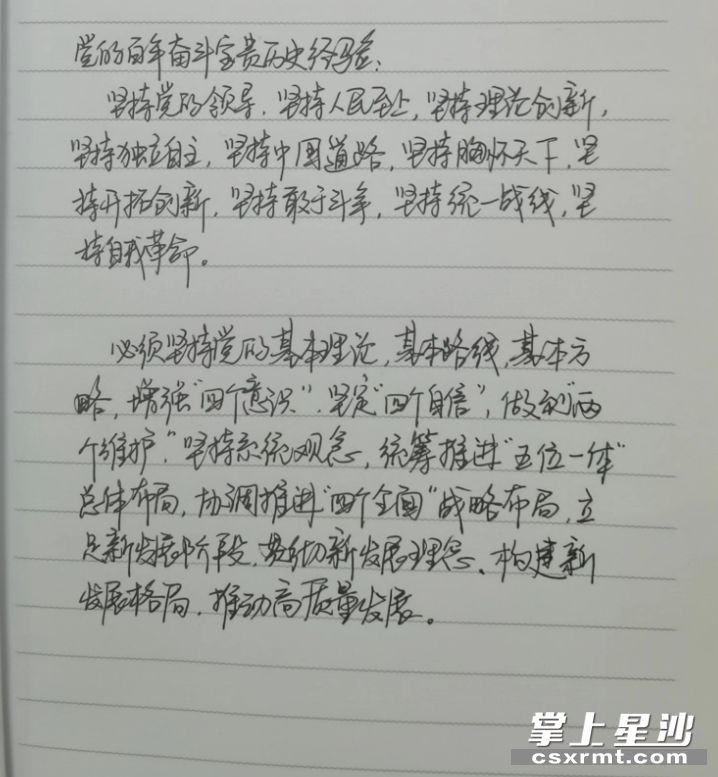 党的百年奋斗宝贵历史经验：
坚持党的领导，坚持人民至上，坚持理论创新，
坚持独立自主，坚持中国道路，坚持胸怀天下，坚
持开拓创新，坚持敢于斗争，坚持统一战线，坚
持自我革命。
必须坚持党的基本理论，基本路线，基本方
略，增强"四个意识"，坚定"四个自信"，做到"两
个维护"，坚持系统观念，统筹推进"五位一体"
总体布局，协调推进"四个全面"战略布局，立
足新发展阶段，贯彻新发展理念、构建新
发展格局，推动高质量发展。
掌上星沙
csxrmt.com